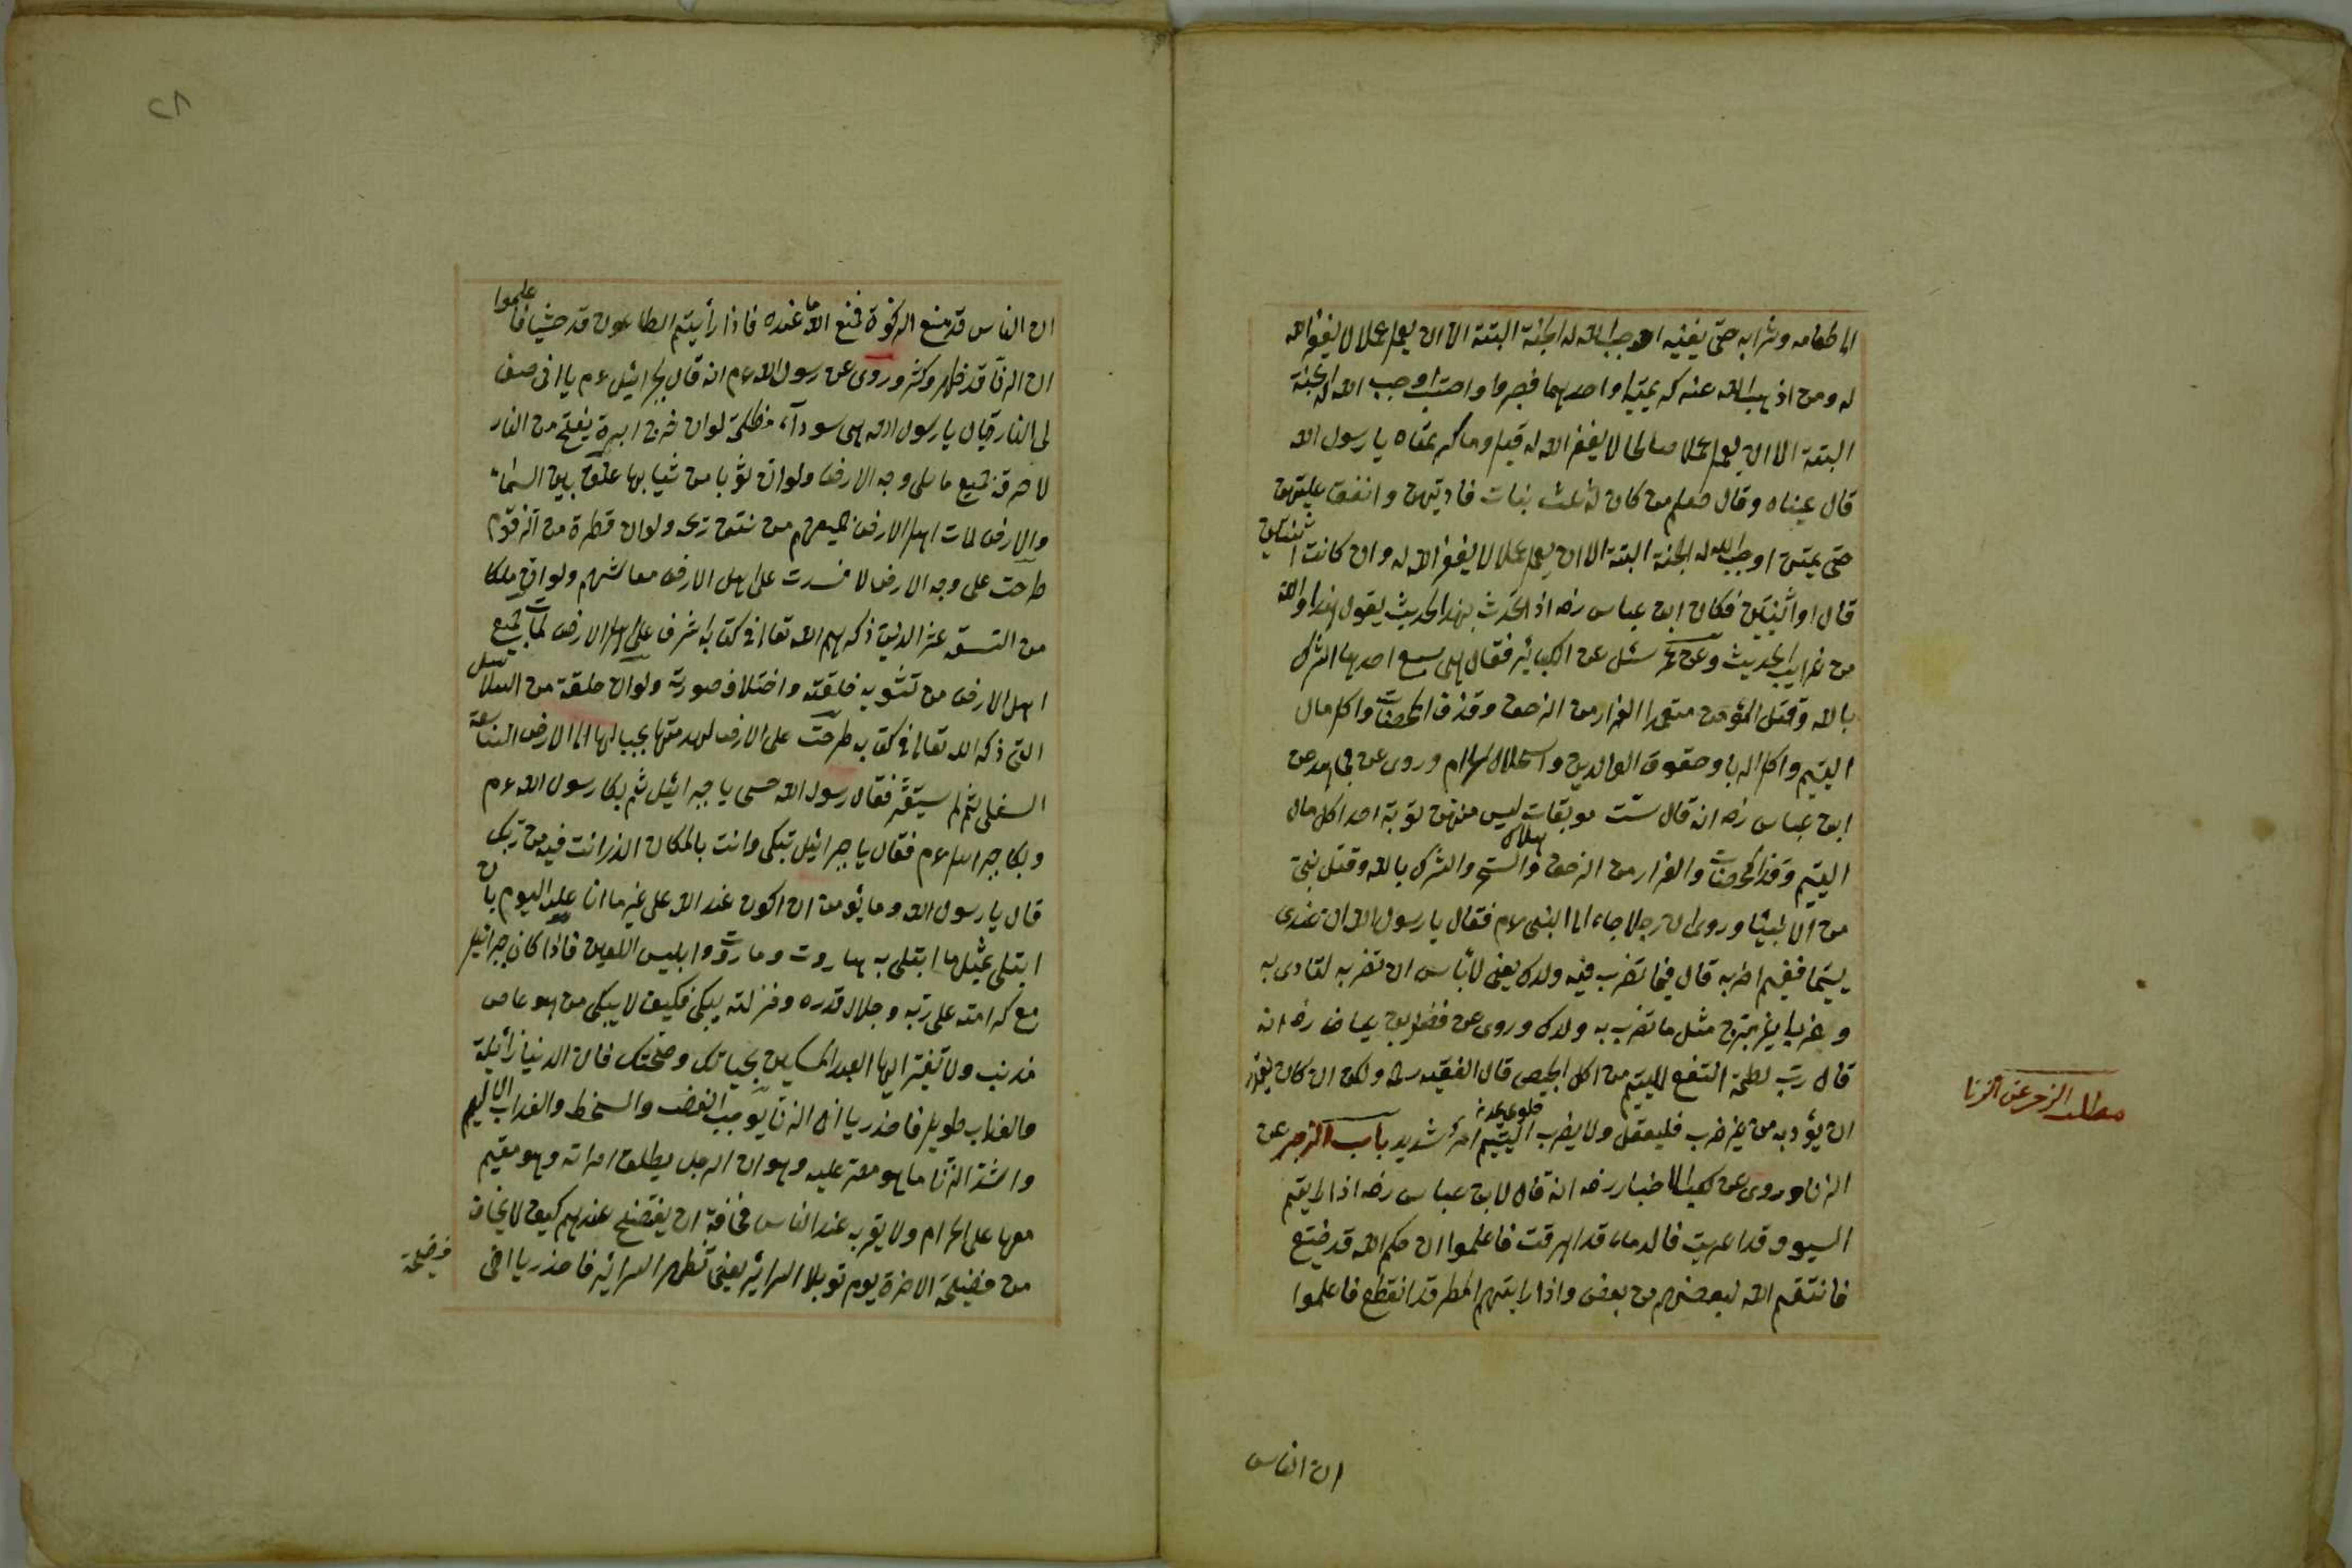 الى طعامه وشرابه حتى يغنيه اوجب الله له الجنة البتة الا ان يعمل عملا لا يغفر الله
له ومن اذهب الله عنه كريمتيه او احديهما فصبر واحتسب اوجب الله له الجنة
البتة الا ان يعمل عملا صالحا لا يغفر الله له قيل وما كريمتاه يا رسول الله
قال عيناه وقال صلعم من كان له ثلث بنات فادبهن وانفق عليهن
حتى يمتن اوجب الله له الجنة البتة الا ان يعمل عملا لا يغفر الله له وان كانت اثنتين
قال او اثنتين فكان ابن عباس رضه اذا تحدث بهذا الحديث يقول هذا والله
من غرايب الحديث وعن عمر سئل عن الكبائر فقال هي سبع احديها الشرك
بالله وقتل المؤمن متعمدا الفرار من الزحف وقذف المحصنات واكل مال
اليتيم واكل الربا وعقوق الوالدين واستحلال الحرام وروى عن مجاهد عن
ابن عباس رضه انه قال ست موبقات ليس منهن توبة احد اكل مال
اليتيم وقذف المحصنات والفرار من الزحف والسحر والشرك بالله وقتل نبى
من الانبياء وروى ان رجلا جاء الى النبى ءم فقال يا رسول الله ان عندى
يتيما ففيم اضربه قال فيما تضرب فيه ولدك يعنى لا بأس ان تضربه لتاديبه
وضربا غير مبرح مثل ما تضرب به ولدك وروى عن فضيل بن عياض رضه انه
قال رب لطمة انفع لليتيم من اكل الخبيص قال الفقيه رحمه ولكن ان كان يقدر
ان يؤدبه من غير ضرب فليفعل ولا يضرب اليتيم امر شديد باب الزجر عن
مطلب الزجر عن الزنا
الزنا وروى عن كعب الاخبار رضه انه قال لابن عباس رضه اذا رايتم
السيوف قد اعريت فالدماء قد اهرقت فاعلموا ان حكم الله قد ضيع
فانتقم الله لبعضهم من بعض واذا رايتهم المطر قد انقطع فاعلموا
ان الناس
٢٨
ان الناس قد منع الزكوة فمنع الله ما عنده فاذا رأيتم الطاعون قد حشيا فاعلموا
ان الزنا قد ظهر وكثر وروى عن رسول الله ءم انه قال لجبرائيل ءم يا اخى صف
لى النار قال يا رسول الله هى سوداء مظلمة لو ان خرق ابرة يفتح من النار
لاحرق جميع ما على وجه الارض ولو ان ثوبا من ثيابها علق بين السماء
والارض لمات اهل الارض جميعهم من نتن ريحه ولو ان قطرة من الزقوم
طرحت على وجه الارض لافسدت على اهل الارض معائشهم ولو ان ملكا
من التسعة عشر الذين ذكرهم الله تعالى فى كتابه اشرف على اهل الارض لمات جميع
اهل الارض من تشويه خلقته واختلاف صورته ولو ان حلقة من السلاسل
التى ذكر الله تعالى فى كتابه طرحت على الارض لهدمتها بجبالها الى الارض السابعة
السفلى ثم لم يستقر فقال رسول الله حسبى يا جبرائيل ثم بكا رسول الله ءم
وبكا جبرائيل ءم فقال يا جبرائيل تبكى وانت بالمكان الذى انت فيه من ربك
قال يا رسول الله وما يؤمن ان اكون عند الله على غير ما انا عليه اليوم بان
ابتلى بمثل ما ابتلى به هاروت وماروت وابليس اللعين فاذا كان جبرائيل
مع كرامته على ربه وجلال قدره ومنزلته يبكى فكيف لا يبكى من هو عاص
مذنب ولا تغتر ايها العبد المسكين بحياتك وصحتك فان الدنيا زائلة
والعذاب طويل فاحذر يا اخى الزنا يوجب الغضب والسخط والعذاب الاليم
واشد الزنا ما هو مصر عليه وهو ان الرجل يطلق امراته وهو مقيم
معها على الحرام ولا يقربه عند الناس مخافة ان يفتضح عندهم كيف لا يخاف
من فضيحة الاخرة يوم تبلا السرائر يعنى تظهر السرائر فاحذر يا اخى
فضيحة